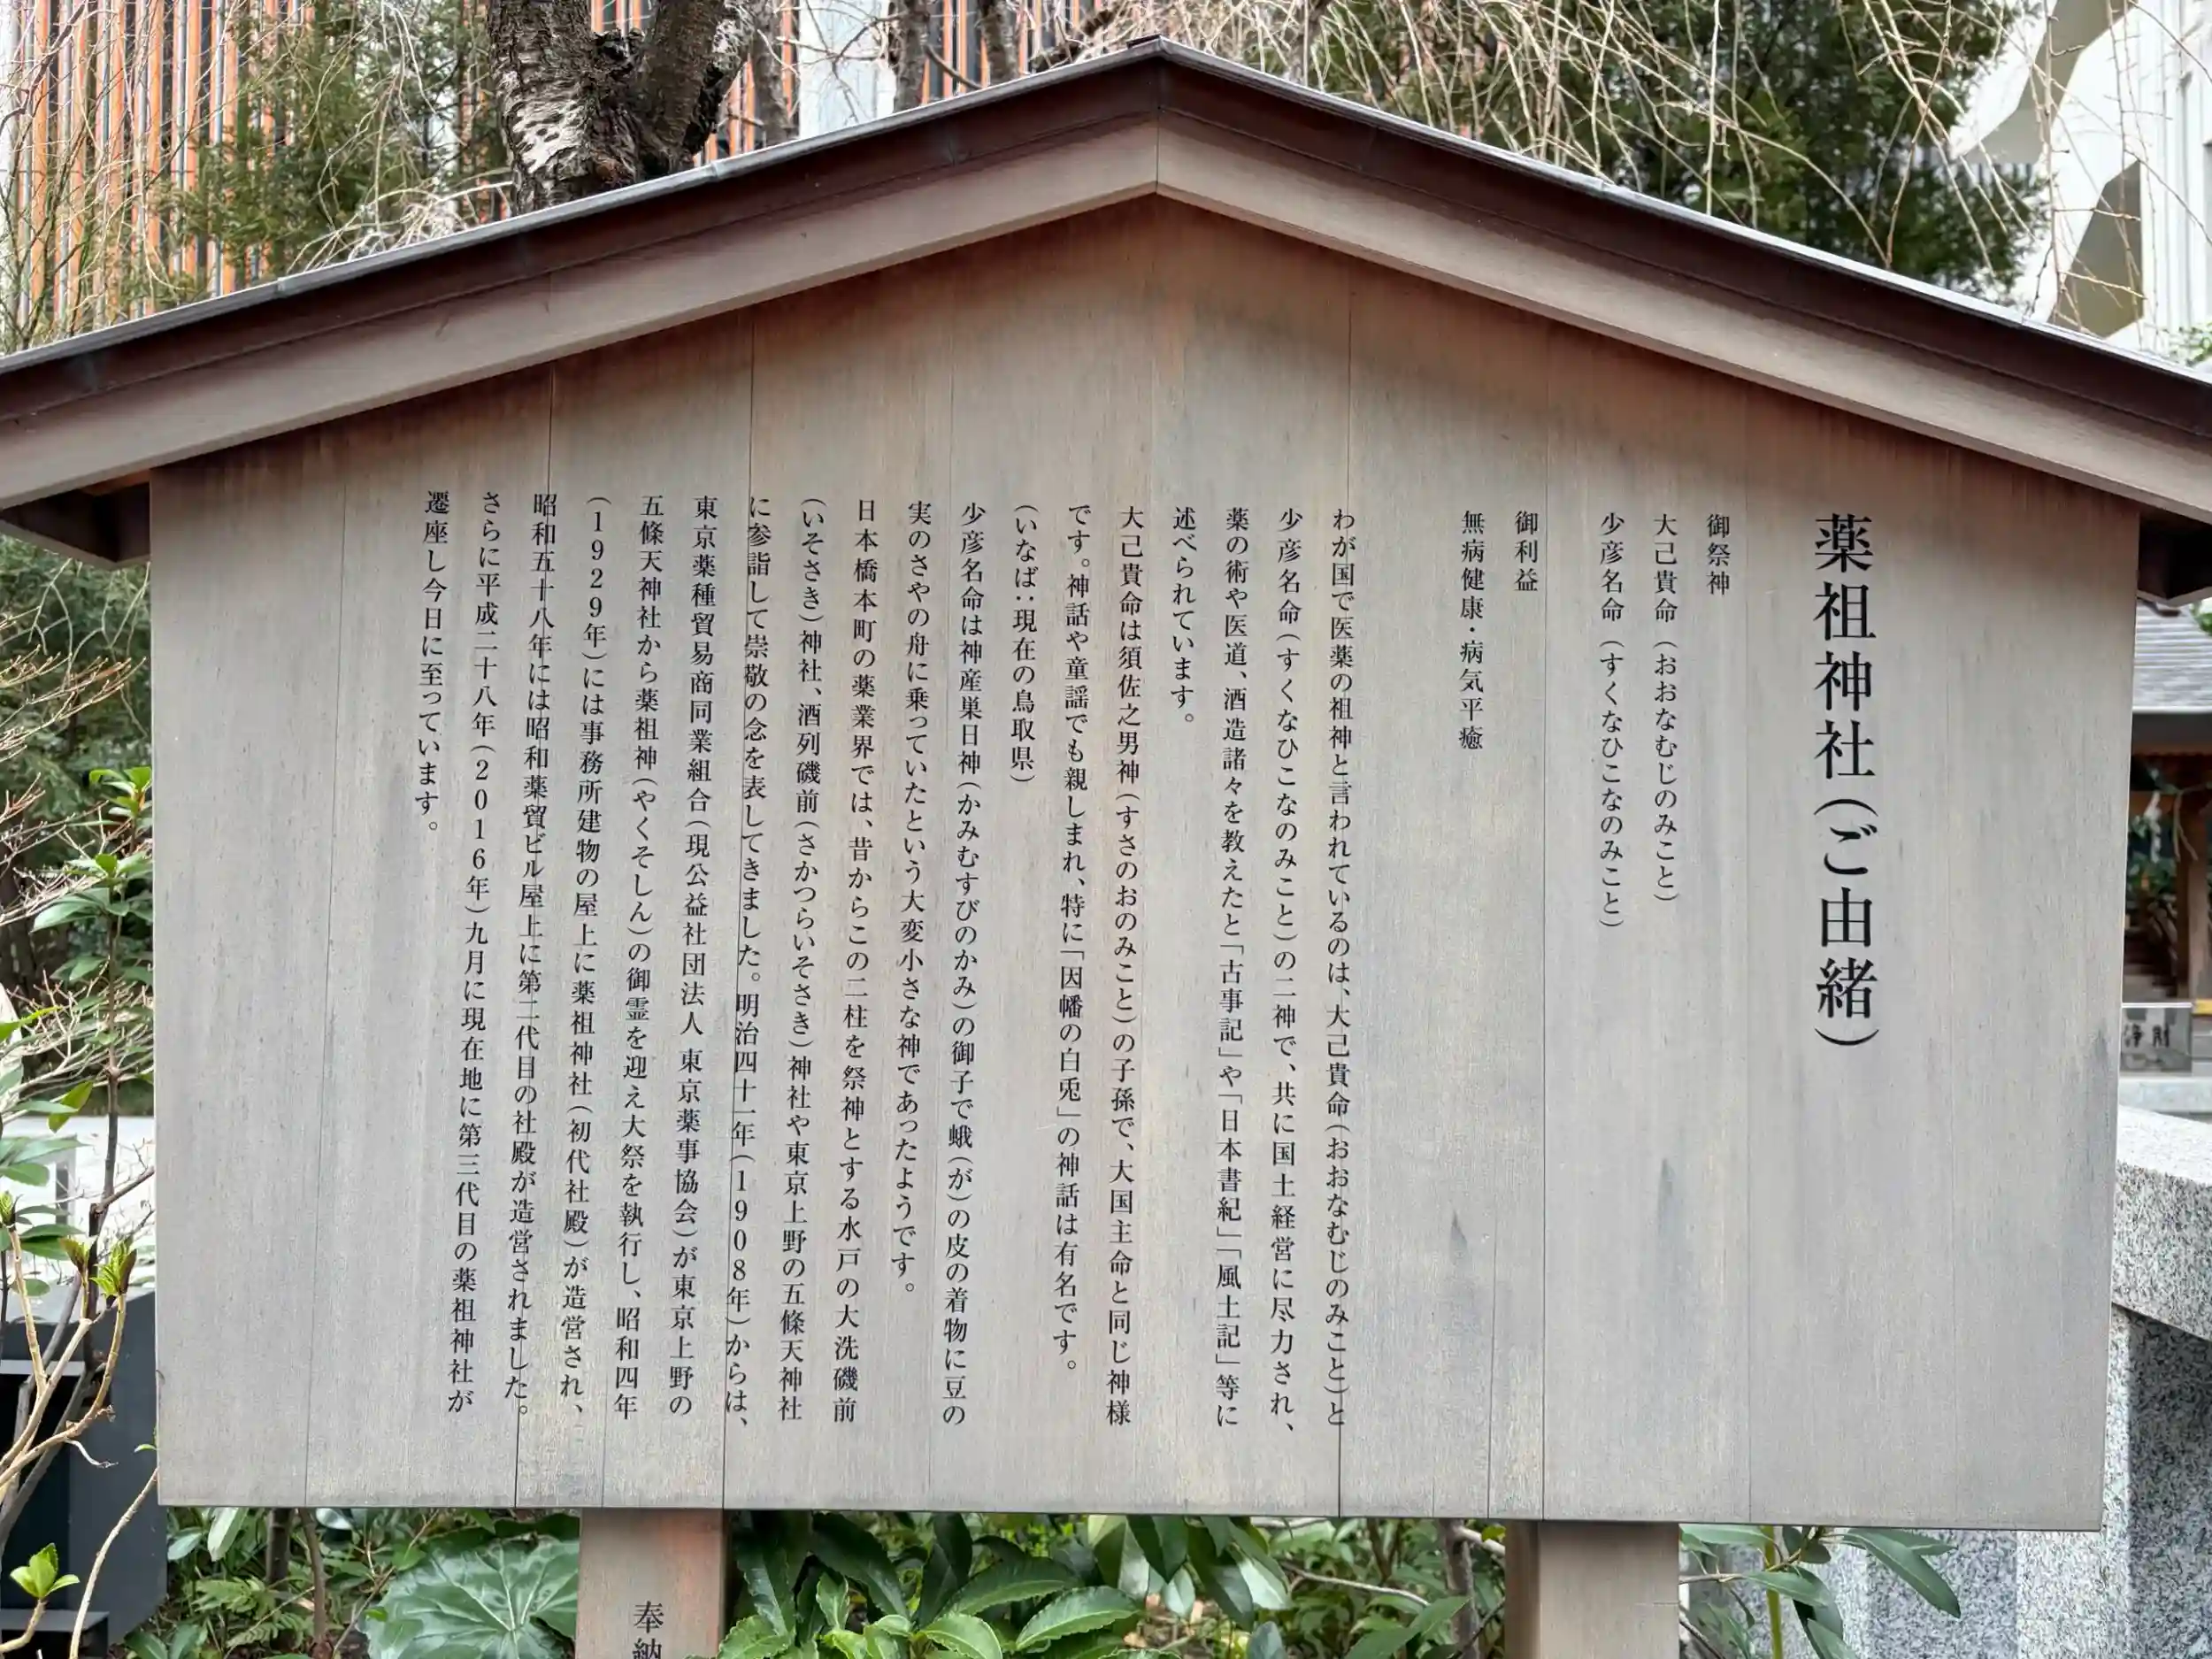 薬祖神社(ご由緒)
御祭神
大己貴命(おおなむじのみこと)
少彦名命(すくなひこなのみこと)
御利益
無病健康・病気平癒
わが国で医薬の祖神と言われているのは、大己貴命(おおなむじのみこと)と
少彦名命(すくなひこなのみこと)の二神で、共に国土経営に尽力され、
薬の術や医道、酒造諸々を教えたと「古事記」や「日本書紀」「風土記」等に
述べられています。
大己貴命は須佐之男神(すさのおのみこと)の子孫で、大国主命と同じ神様
です。神話や童謡でも親しまれ、特に「因幡の白兎」の神話は有名です。
(いなば:現在の鳥取県)
少彦名命は神産巣日神(かみむすびのかみ)の御子で蛾(が)の皮の着物に豆の
実のさやの舟に乗っていたという大変小さな神であったようです。
日本橋本町の薬業界では、昔からこの二柱を祭神とする水戸の大洗磯前
(いそさき)神社、酒列磯前(さかつらいそさき)神社や東京上野の五條天神社
に参詣して崇敬の念を表してきました。明治四十一年(1908年)からは、
東京薬種貿易商同業組合(現公益社団法人 東京薬事協会)が東京上野の
五條天神社から薬祖神(やくそしん)の御霊を迎え大祭を執行し、昭和四年
(1929年)には事務所建物の屋上に薬祖神社(初代社殿)が造営され、
昭和五十八年には昭和薬貿ビル屋上に第二代目の社殿が造営されました。
さらに平成二十八年(2016年)九月に現在地に第三代目の薬祖神社が
遷座し今日に至っています。
奉納
浄財